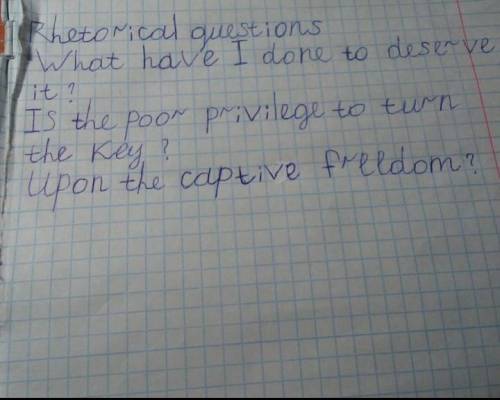 Rhetorical questions
What have I done to deserve
it?
Is the poor privilege to turn
the key?
Upon the captive freedom?